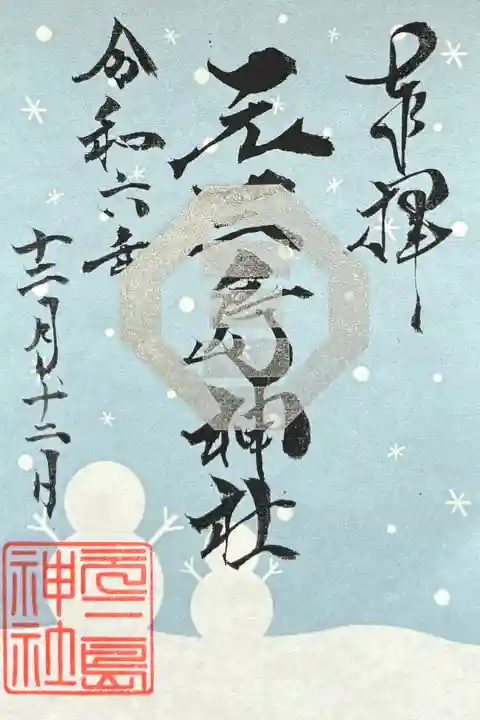 奉拝
元三島神社
令和六年
十二月二十二日
元三島
神社
三